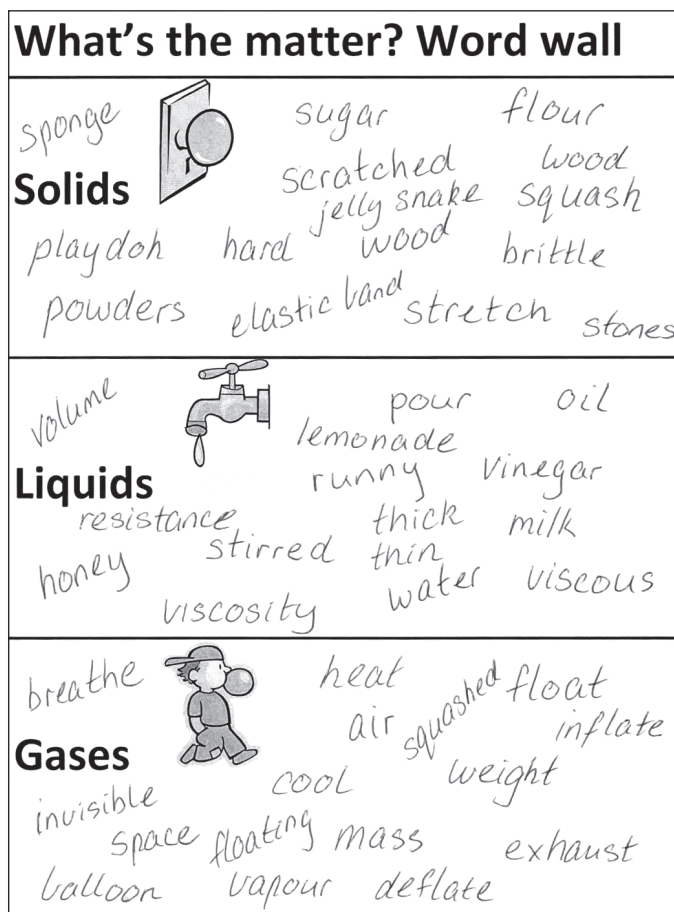 What's the matter? Word wall
sponge sugar flour
Solids scratched wood
jelly snake squash
playdoh hard wood brittle
powders elastic band stretch stones
volume pour oil
lemonade
Liquids runny vinegar
resistance thick milk
honey stirred thin
viscosity water viscous
breathe heat squashed float
air inflate
Gases cool weight
invisible
space floating mass exhaust
balloon vapour deflate